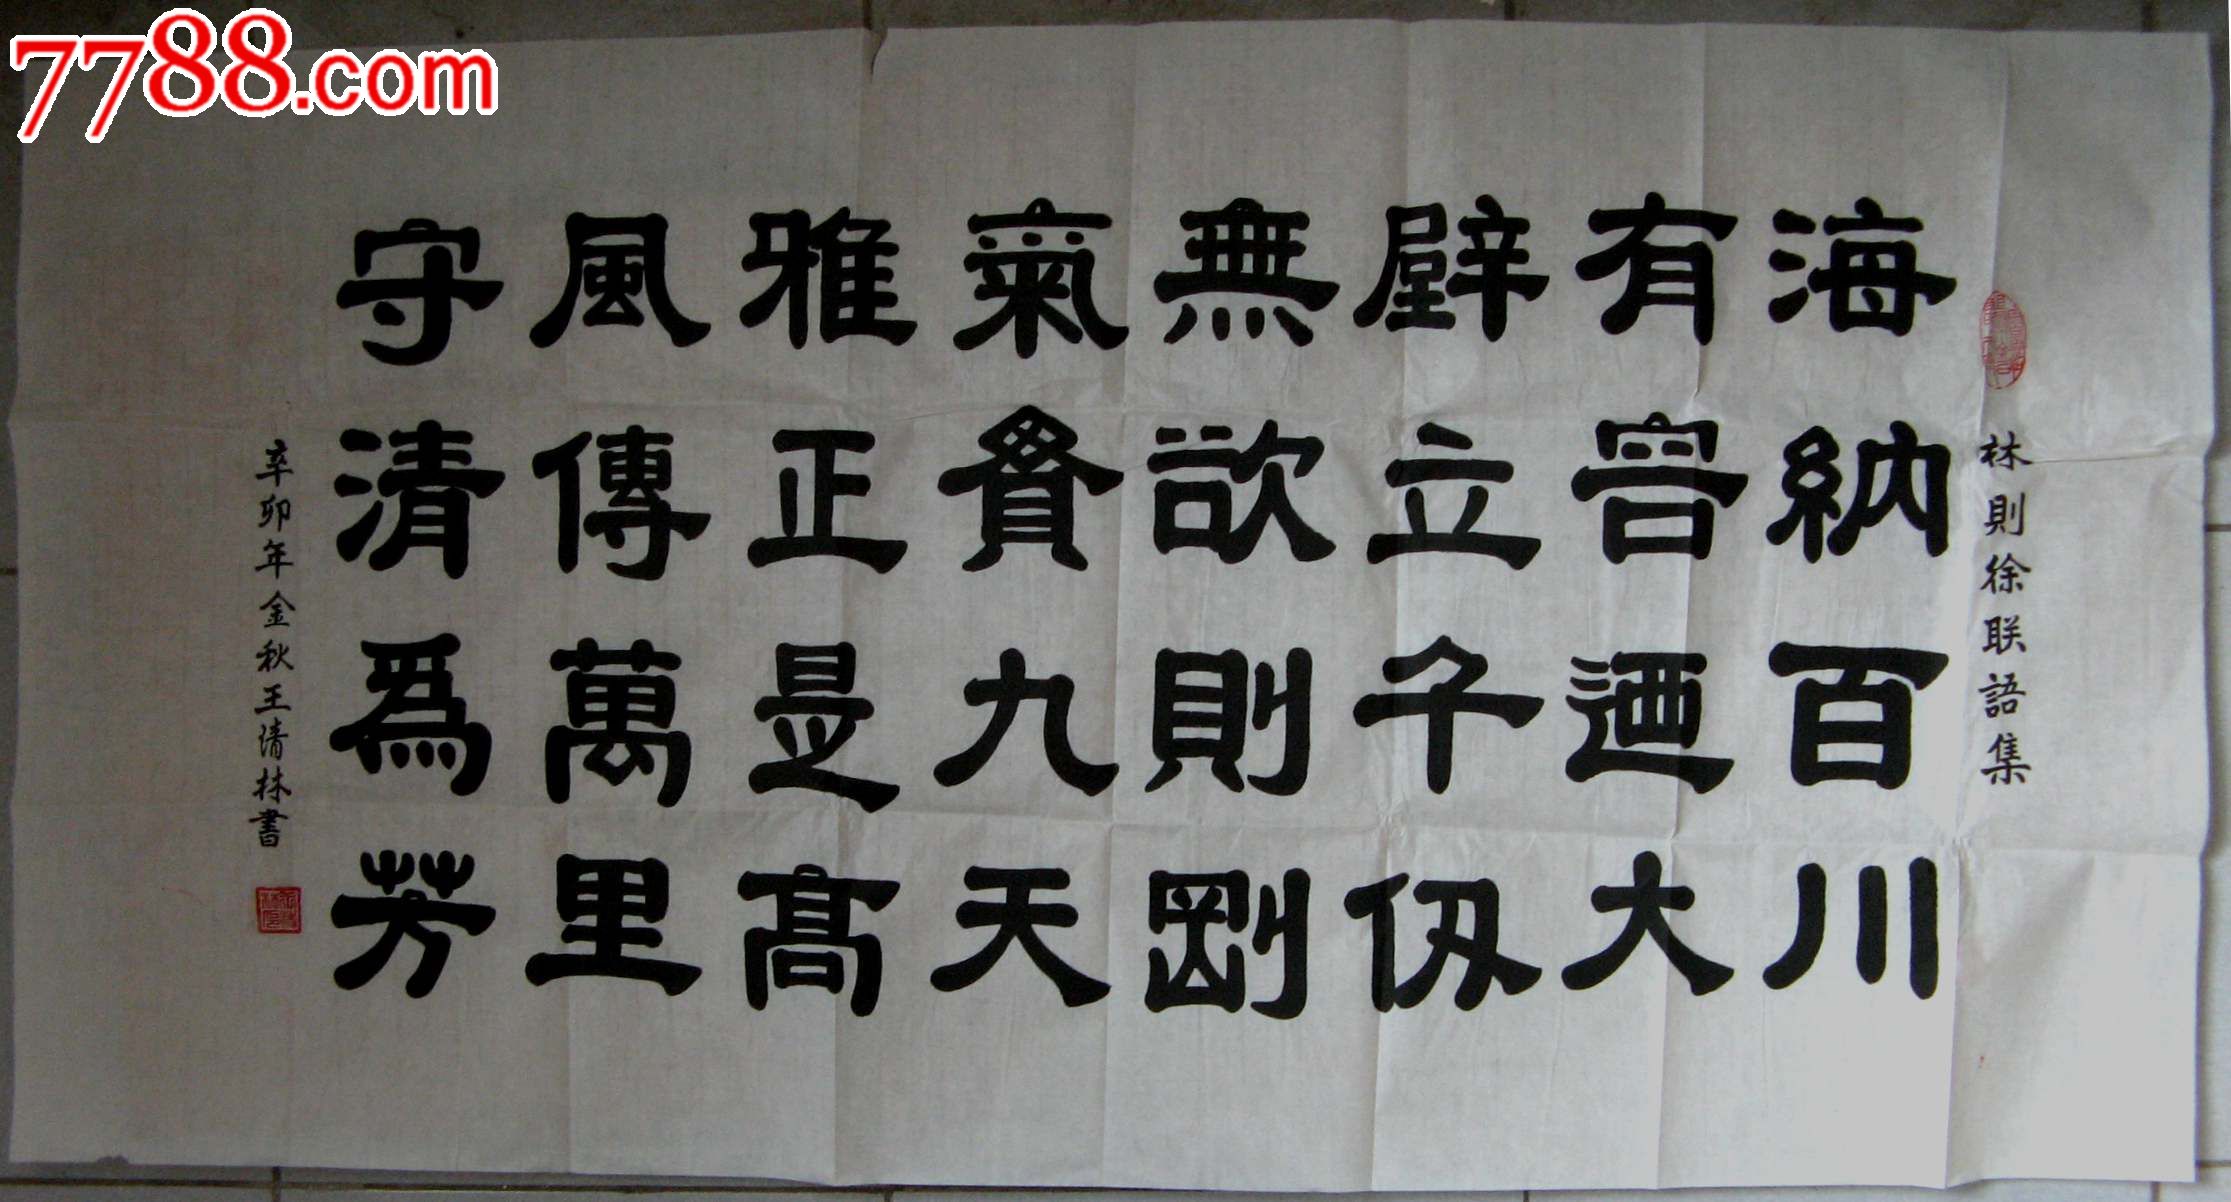 7788.com
林則徐联語集
海納百川
有容迺大
壁立千仞
無欲則剛
氣貫九天
雅正是髙
風傳萬里
守清爲芳
辛卯年金秋王清林書